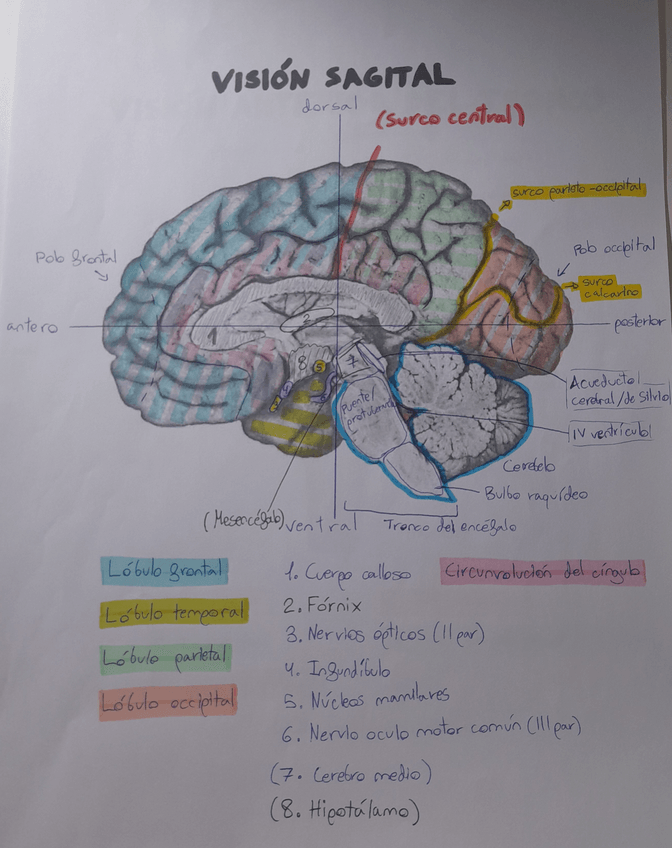 VISIÓN SAGITAL
dorsal
(Surco central)
surco parieto-occipital
Polo frontal
Polo occipital
surco
calcarino
antero
posterior
1
2
8
5
7
Puente/
protuberancia
Acueducto
cerebral/de Silvio
IV ventrículo
Cerebelo
Bulbo raquídeo
(Mesencéfalo)
ventral
Tronco del encéfalo
Lóbulo frontal
Lóbulo temporal
Lóbulo parietal
Lóbulo occipital
1. Cuerpo calloso
2. Fórnix
3. Nervios ópticos (II par)
4. Infundíbulo
5. Núcleos mamilares
6. Nervio oculo motor común (III par)
(7. Cerebro medio)
(8. Hipotálamo)
Circunvolución del cíngulo